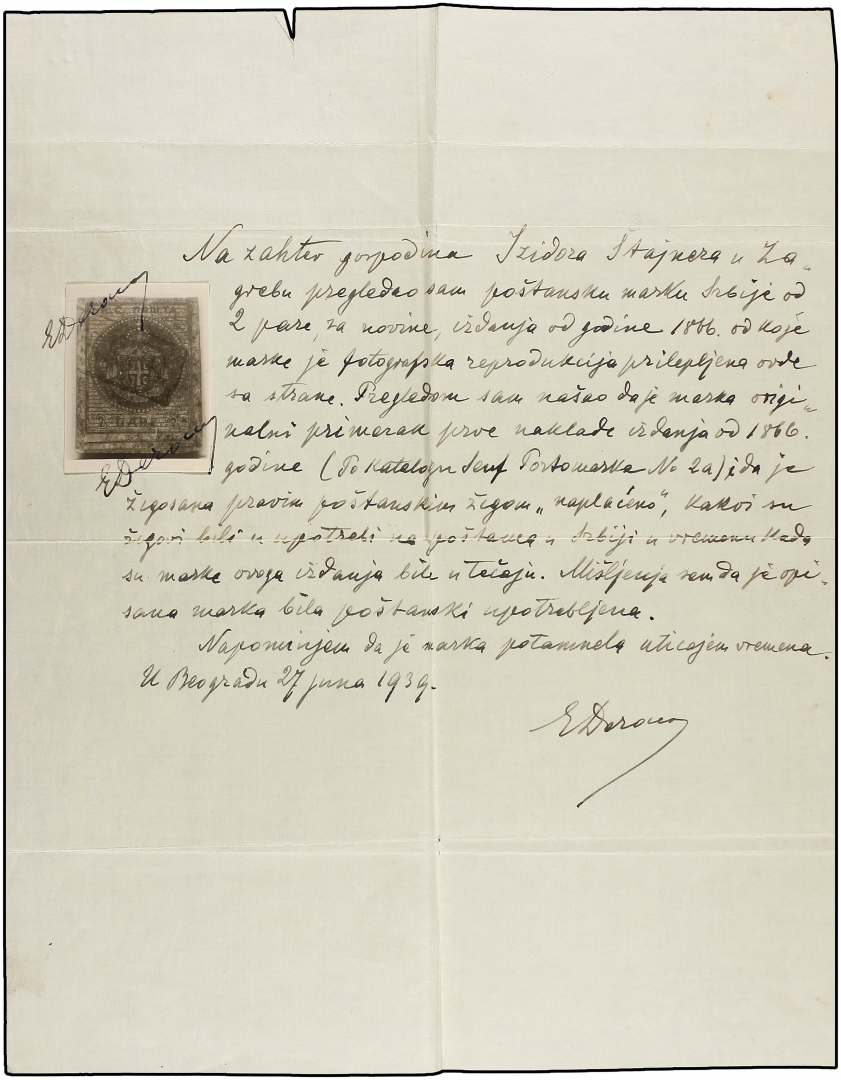 Na zahtev gospodina Izidora Štajnera u Za„
grebu pregledao sam poštansku marku Srbije od
2 pare, za novine, izdanja od godine 1866. od koje
marke je fotografska reprodukcija prilepljena ovde
sa strane. Pregledom sam našao da je marka origi„
nalni primerak prve naklade izdanja od 1866.
godine (Po katalogu Senf Portomarka No 2a) i da je
žigosana pravim poštanskim žigom „naplaćeno“, kakvi su
žigovi bili u upotrebi na poštama u Srbiji u vremenu kada
su marke ovoga izdanja bile u tečaju. Mišljenja sam da je opi„
sana marka bila poštanski upotrebljena.
Napominjem da je marka potamnela uticajem vremena.
U Beogradu 27 juna 1939.
EDeroco
EDeroco
EDeroco